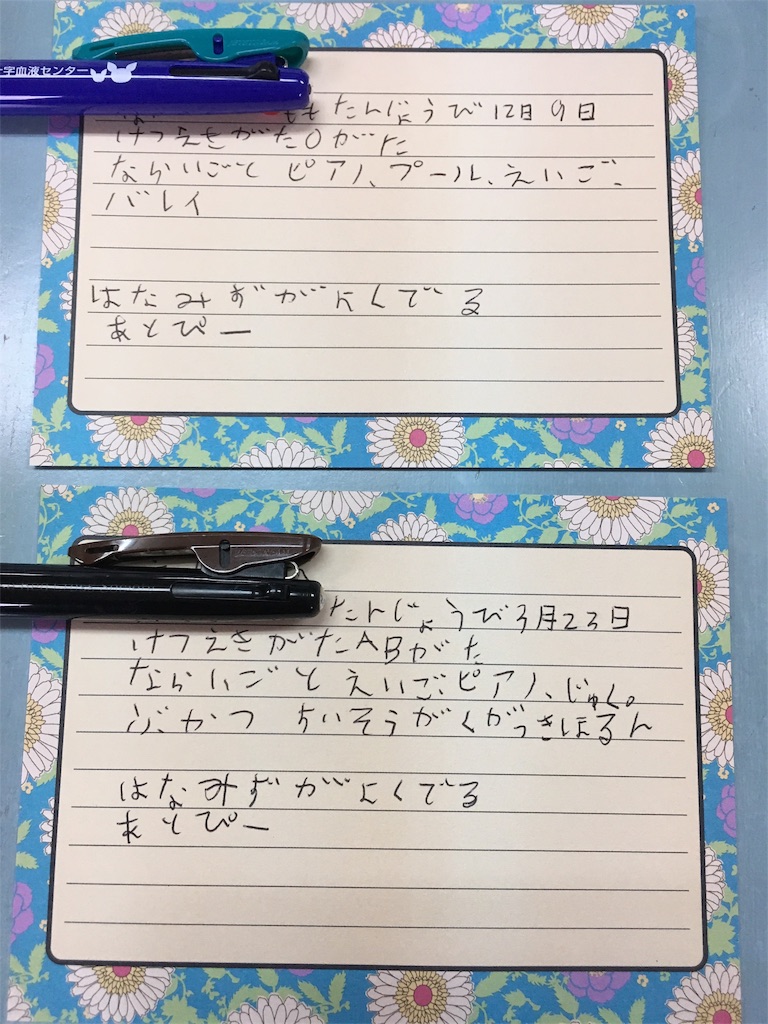 字血液センター
もも たんじょうび 12月9日
けつえきがたOがた
ならいごと ピアノ、プール、えいご、
バレイ
はなみずがよくでる
あとぴー
たんじょうび3月23日
けつえきがたABがた
ならいごと えいご、ピアノ、じゅく。
ぶかつ すいそうがくがっきほるん
はなみずがよくでる
あとぴー